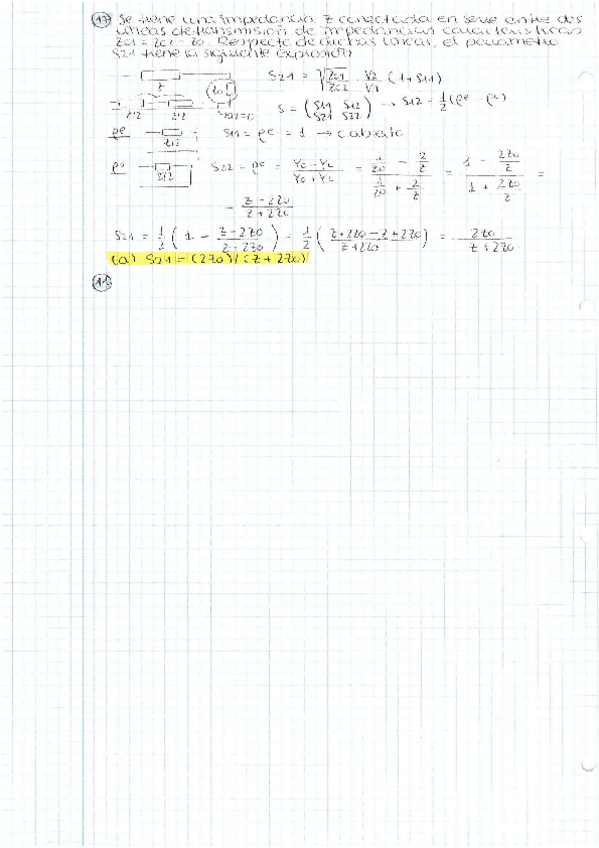 17 Se tiene una impedancia Z conectada en serie entre dos
líneas de transmisión de impedancias características
Zc1 = Zc2 = Zo. Respecto de dichas líneas, el parámetro
S21 tiene la siguiente expresión
Z S21 = √(Zc1/Zc2) · V2/V1 (1 + S11)
Z/2 Z/2 S = (S11 S12 S21 S22) → S12 = 1/2 (ρe - ρo)
ρe Z/2 S11 = ρe = 1 → c. abierto
ρo Z/2 S22 = ρo = (Yo - YL)/(Yo + YL) = (1/Zo - 2/Z)/(1/Zo + 2/Z) = (1 - 2Zo/Z)/(1 + 2Zo/Z) =
= (Z - 2Zo)/(Z + 2Zo)
S21 = 1/2 (1 - (Z - 2Zo)/(Z + 2Zo)) = 1/2 ((Z + 2Zo - Z + 2Zo)/(Z + 2Zo)) = 2Zo/(Z + 2Zo)
(a) S21 = (2Zo)/(Z + 2Zo)